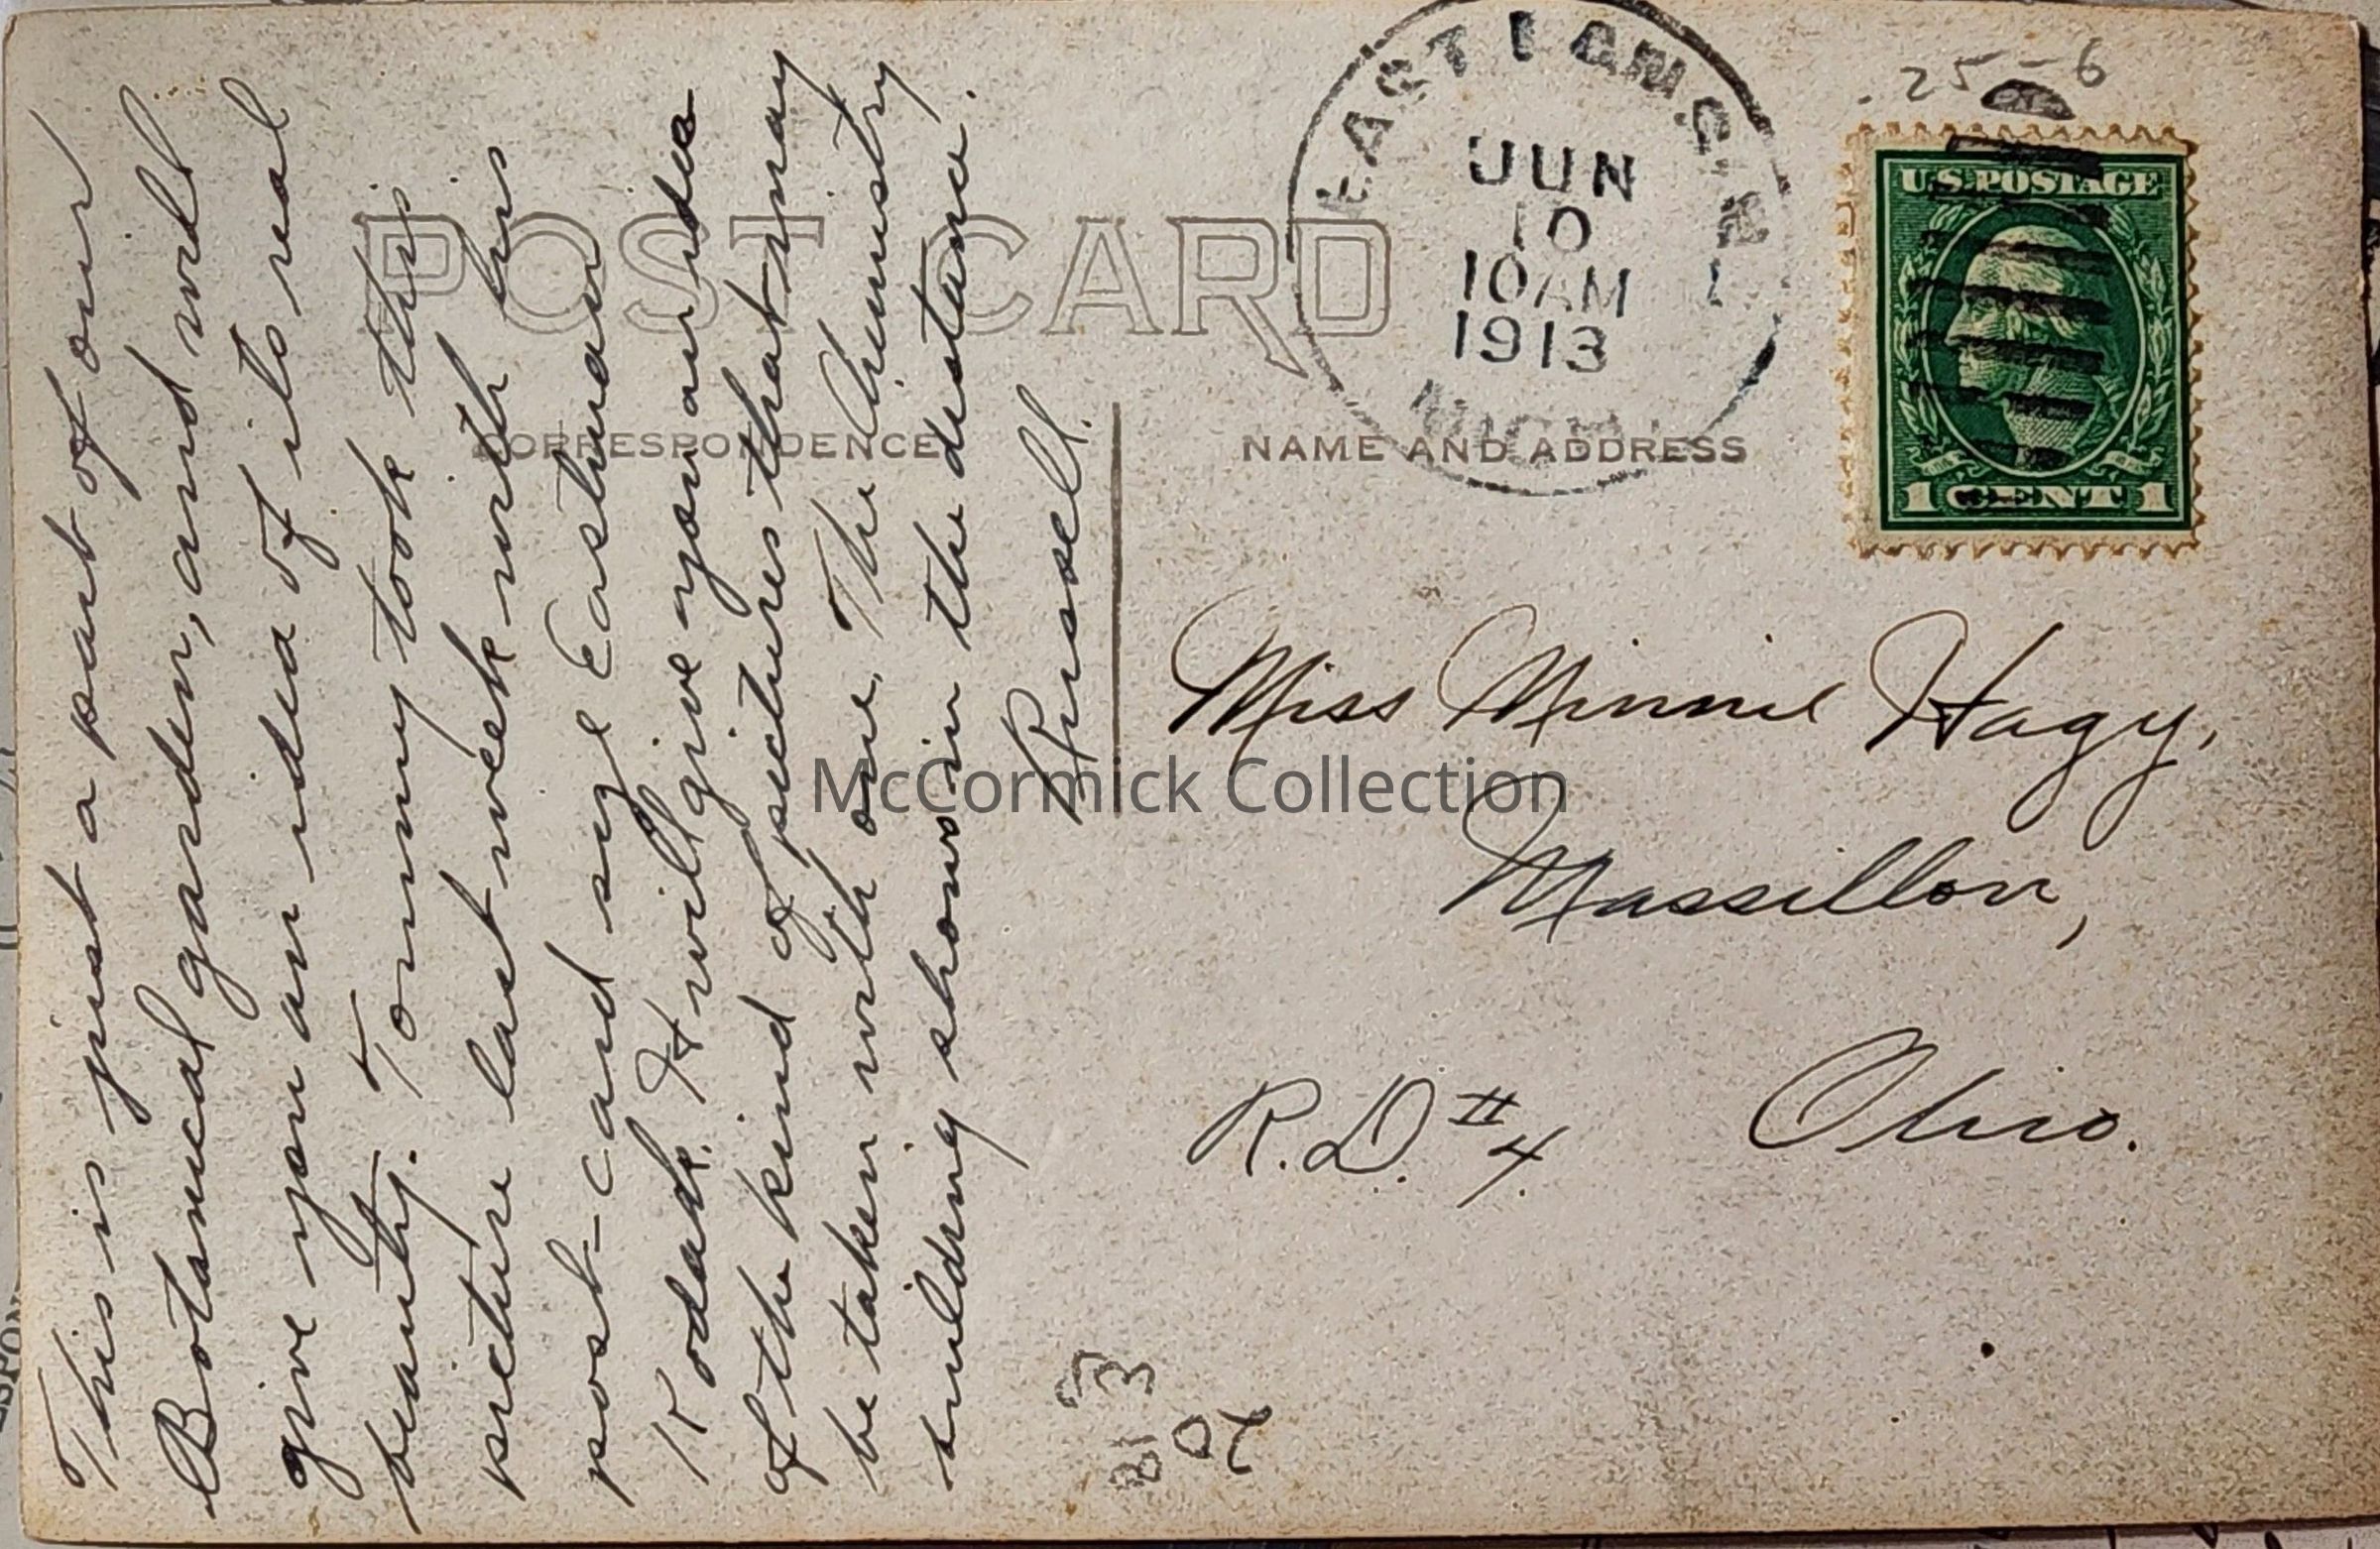 This is just a part of our
Botanical garden, and will
give you an idea of its real
beauty. Tommy took this
picture last week with his
post-card size Eastman
Kodak. It will give you an idea
of the kind of pictures that may
be taken with one. The Chemistry
building shows in the distance.
Russell.
POST CARD
CORRESPONDENCE
NAME AND ADDRESS
EAST LANSING
JUN
10
10 AM
1913
MICH.
1
25-6
U.S. POSTAGE
1 CENT 1
Miss Minnie Hagy,
Massillon,
R.D. #4 Ohio.
McCormick Collection